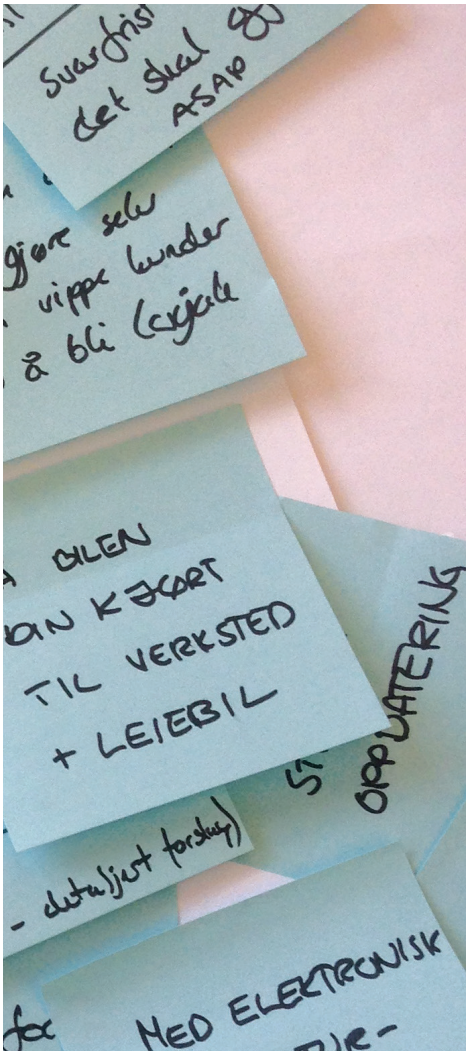 svarfrist
det skal
ASAP
gjøre selv
vippe kunder
å bli lojale
BILEN
DIN KJØRT
TIL VERKSTED
+ LEIEBIL
OPPDATERING
- detaljert forslag)
for
MED ELEKTRONISK